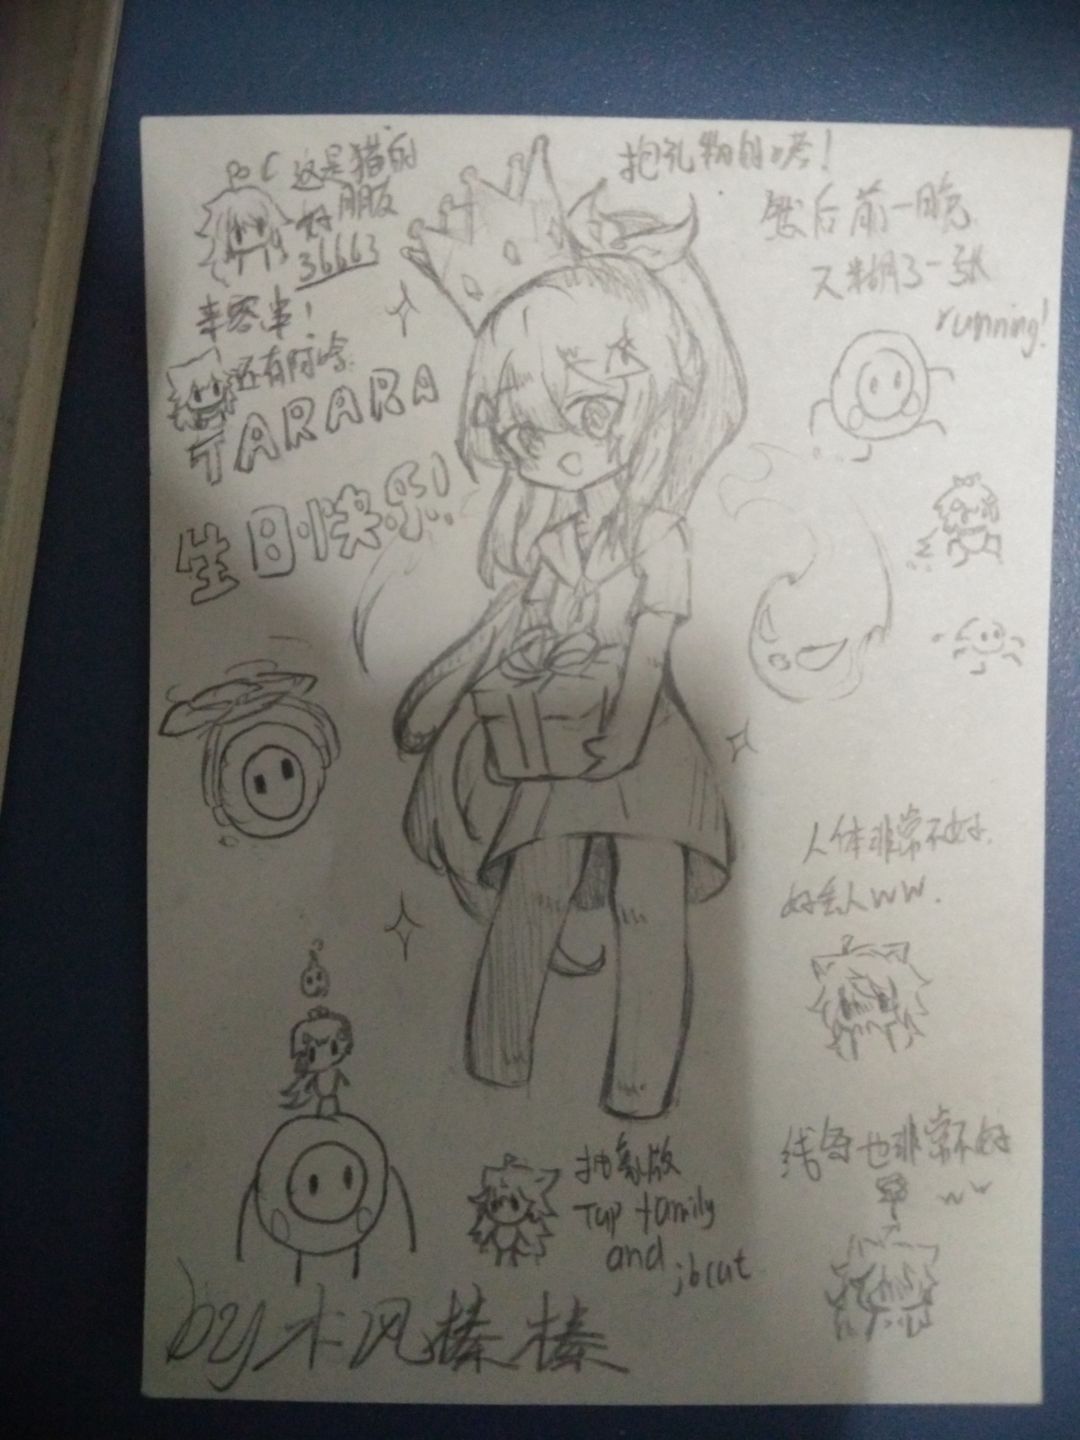 这是猫的
朋友
好
36663
还有阿哈
TARARA
生日快乐!
抱礼物的
然后前一晚
又糊了一张
running!
人体非常不好.
好丢人ww.
线条也非常不好
ww
抽象版
Tup family
and jbcut
by 木风榛榛